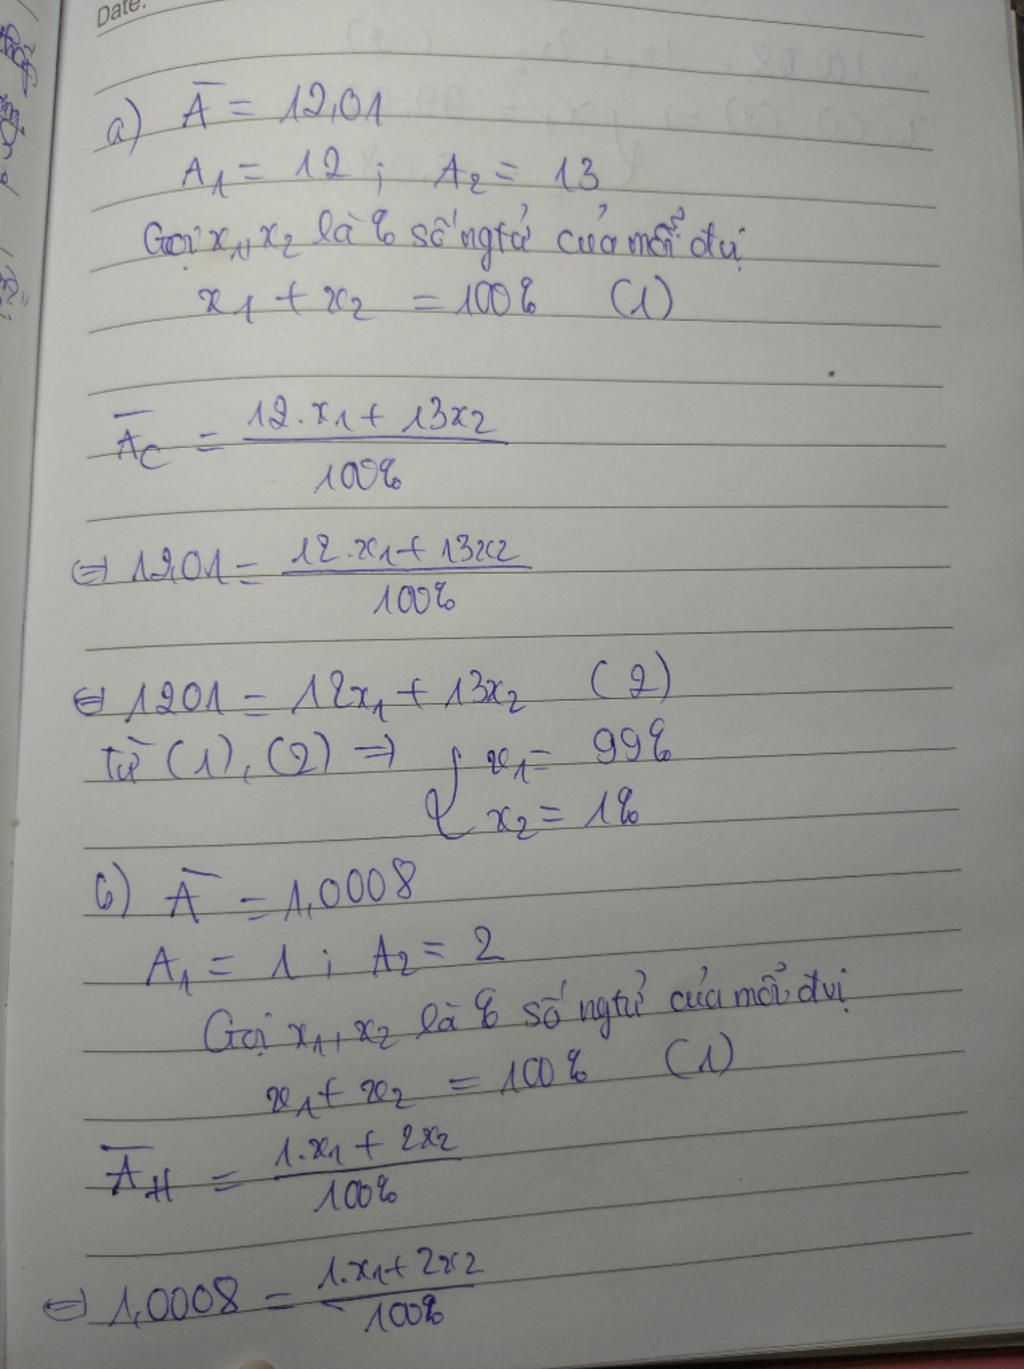 Date.
a) A̅ = 12,01
A₁ = 12 ; A₂ = 13
Gọi x₁, x₂ là % số ngtử của mỗi đvị
x₁ + x₂ = 100% (1)
A̅c = (12.x₁ + 13x₂)/100%
⇔ 12,01 = (12.x₁ + 13x₂)/100%
⇔ 1201 = 12x₁ + 13x₂ (2)
từ (1), (2) ⇒ { x₁ = 99%
x₂ = 1%
b) A̅ = 1,0008
A₁ = 1 ; A₂ = 2
Gọi x₁, x₂ là % số ngtử của mỗi đvị
x₁ + x₂ = 100% (1)
A̅H = (1.x₁ + 2x₂)/100%
⇔ 1,0008 = (1.x₁ + 2x₂)/100%